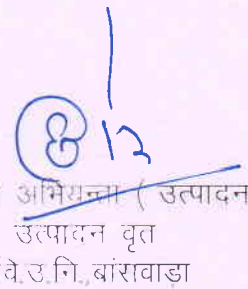 अभियन्ता ( उत्पादन
उत्पादन वृत
वि.उ.नि., बांसवाड़ा